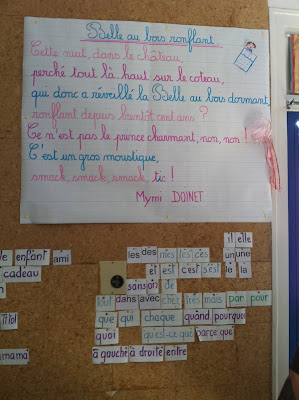 Belle au bois ronflant
Cette nuit, dans le château,
perché tout là haut sur le coteau,
qui donc a réveillé la Belle au bois dormant,
ronflant depuis bientôt cent ans ?
Ce n'est pas le prince charmant, non, non !
C'est un gros moustique,
smack, smack, smack, tic !
Mymi DOINET
il elle
les des mes les ces un une
enfant ami et est c'est s'est le la
cadeau sans on de
tout dans avec chez très mais par pour
que qui chaque quand pourquoi
quoi qu'est-ce que parce que
maman à gauche à droite entre